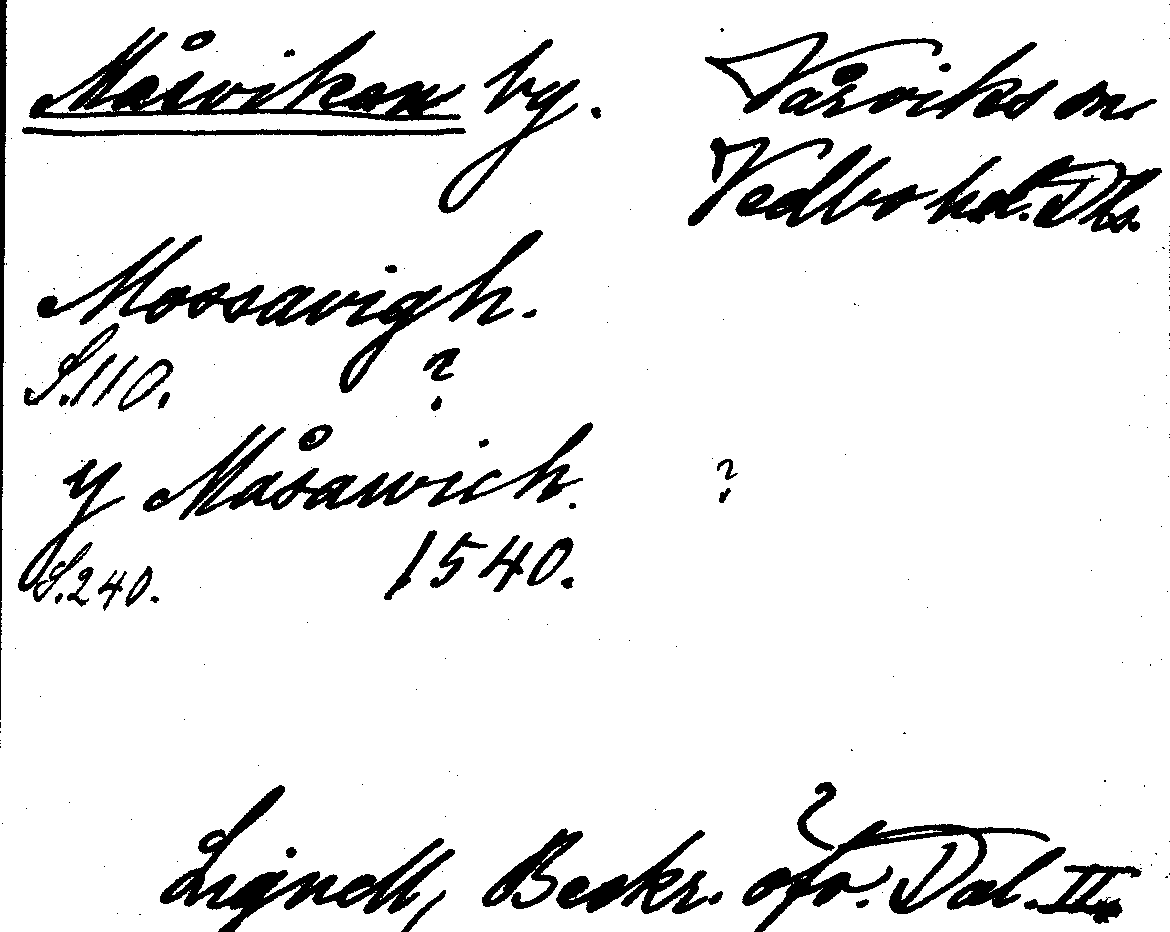 Måsviken by. Vårviks sn.
Vedbo hd. Dls.
Mossavigh.
S. 110. ?
y Måsawich. ?
S. 240. 1540.
Lignell, Beskr. öfv. Dal. II.